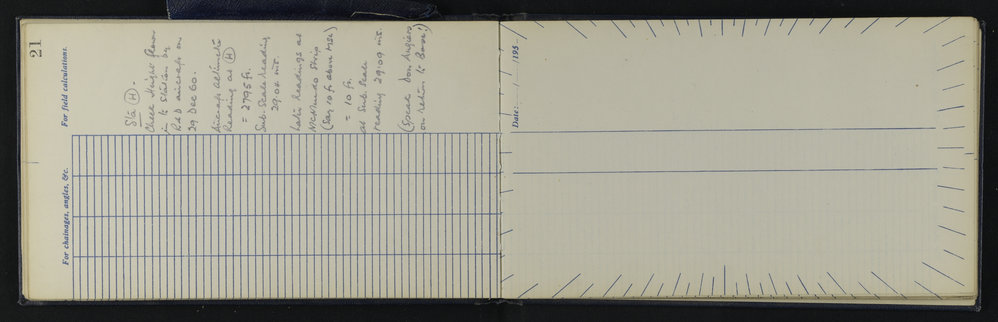 21
For field calculations.
For chainages, angles, &c.
Sta (H).
Check Height flown
in to Station by
R & D aircraft on
29 Dec 60.
Aircraft altimeter
Reading at (H)
= 2795 ft.
Sub-Scale Reading
29.06 ins.
Later Readings at
McMurdo Strip
(Say 10 ft above MSL)
= 10 ft.
at Sub-Scale
reading 29.09 ins.
on return to Base!)
Date: / /195